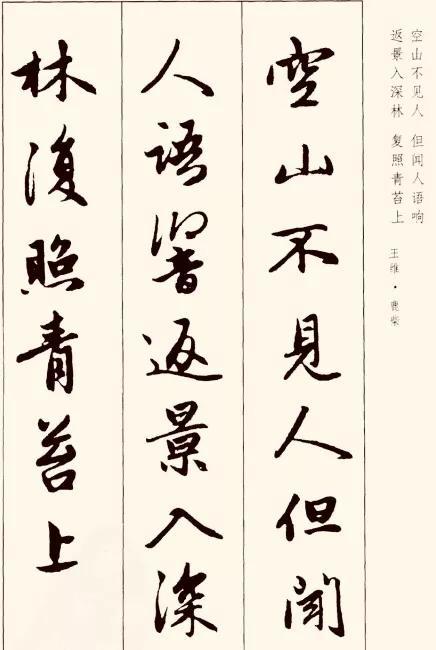 空山不见人 但闻人语响
返景入深林 复照青苔上
王维·鹿柴
空山不見人但聞
人語響返景入深
林復照青苔上